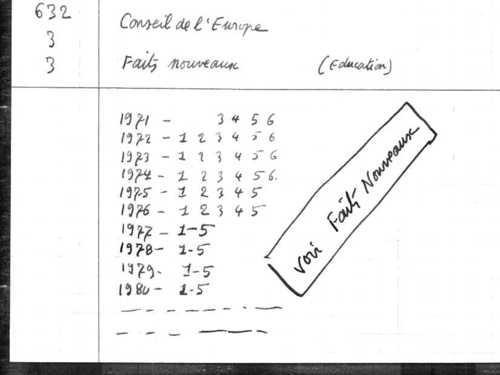 632
3
3
Conseil de l'Europe
Faits nouveaux (Education)
1971 - 3 4 5 6
1972 - 1 2 3 4 5 6
1973 - 1 2 3 4 5 6
1974 - 1 2 3 4 5 6.
1975 - 1 2 3 4 5
1976 - 1 2 3 4 5
1977 - 1-5
1978 - 1-5
1979 - 1-5
1980 - 1-5
voir Faits Nouveaux